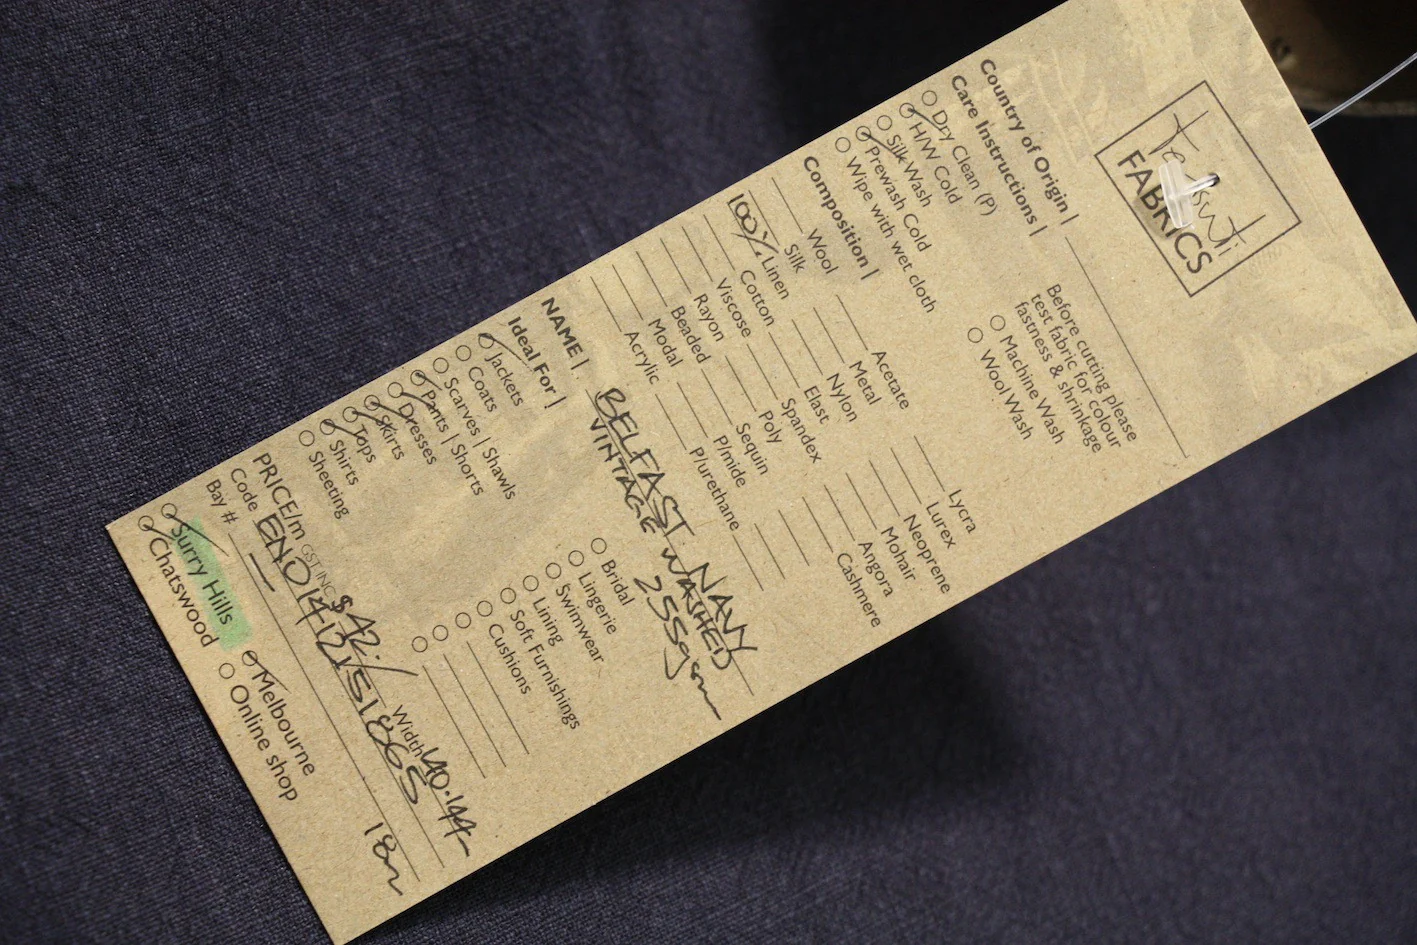 tessuti
FABRICS
Country of Origin |
Care Instructions |
Dry Clean (P)
H/W Cold
Silk Wash
Prewash Cold
Wipe with wet cloth
Before cutting please
test fabric for colour
fastness & shrinkage
Machine Wash
Wool Wash
Composition |
Wool Acetate Lycra
Silk Metal Lurex
100% Linen Nylon Neoprene
Cotton Elast Mohair
Viscose Spandex Angora
Rayon Poly Cashmere
Beaded Sequin
Modal P/mide
Acrylic P/urethane
NAME | BELFAST NAVY
VINTAGE WASHED
255gsm
Ideal For |
Jackets
Coats
Scarves | Shawls
Pants | Shorts
Dresses
Skirts
Tops
Shirts
Sheeting
Bridal
Lingerie
Swimwear
Lining
Soft Furnishings
Cushions
PRICE/m GST INC $42./ Width 140.144
Code ENO1412151865
Bay # 18m
Surry Hills Melbourne
Chatswood Online shop